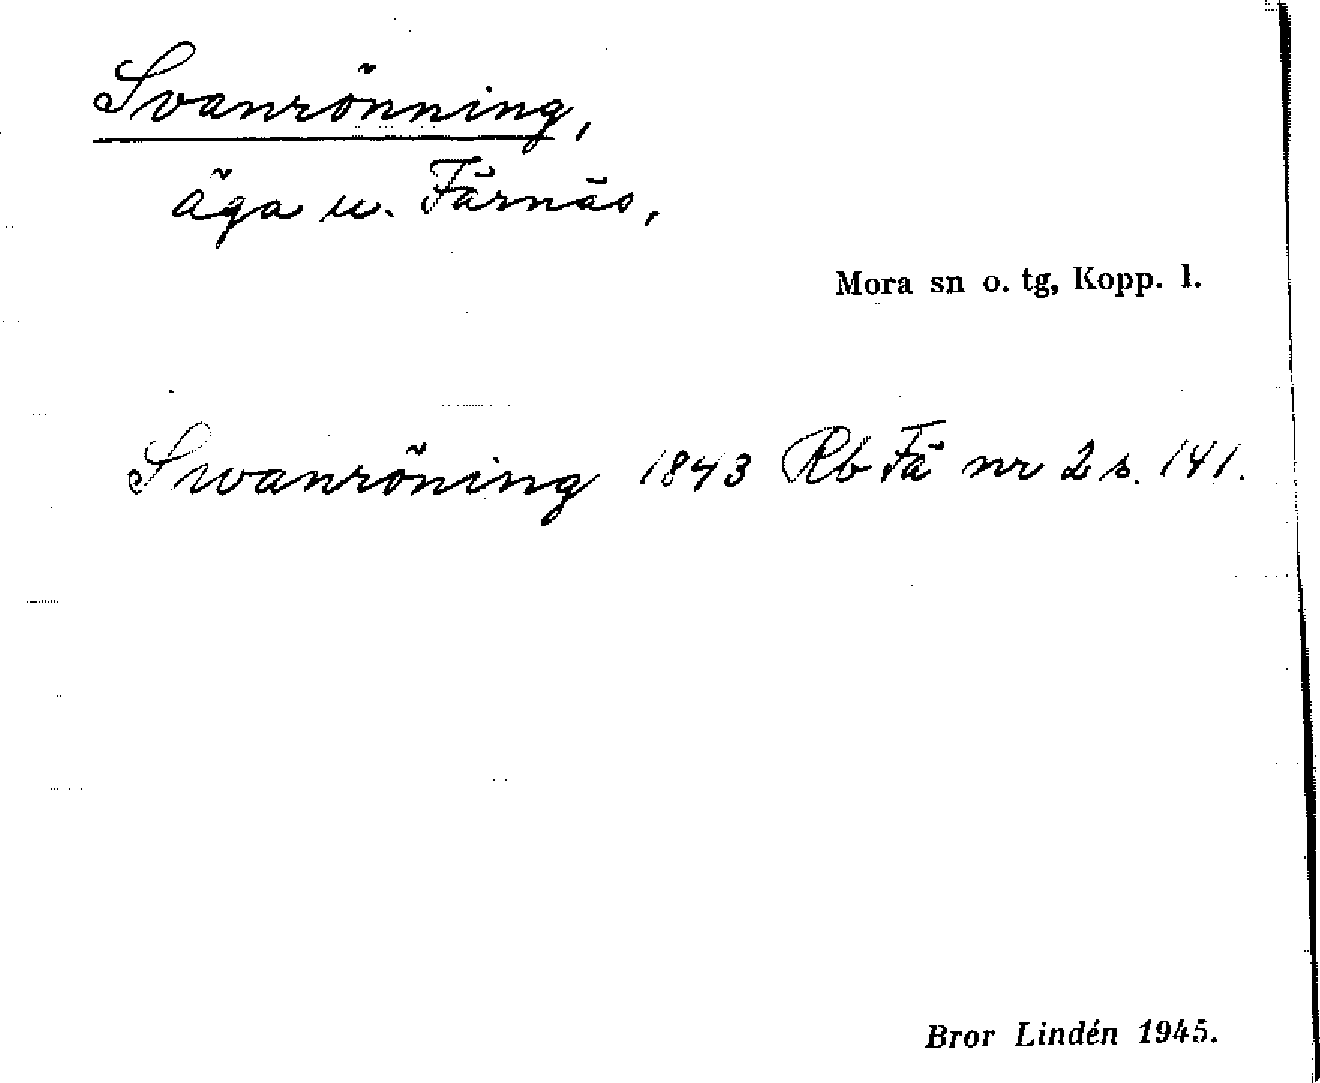 Svanrönning,
äga u. Färnäs,
Mora sn o. tg, Kopp. l.
Swanröning 1843 Rb Fä nr 2 s. 141.
Bror Lindén 1945.